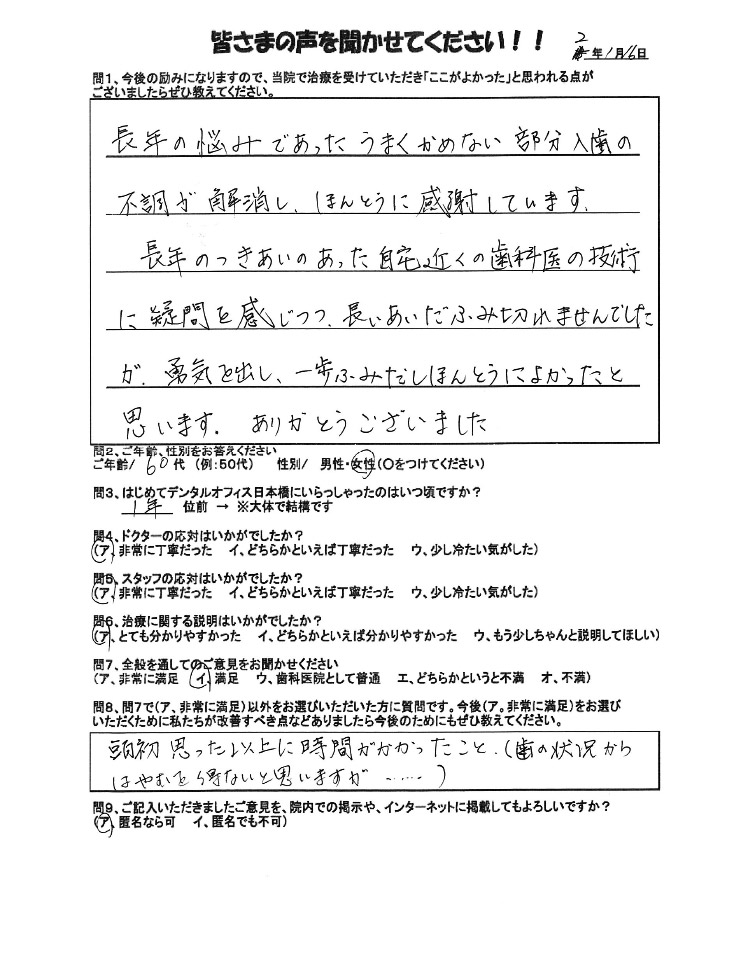 皆さまの声を聞かせてください！！
2年1月16日
問1、今後の励みになりますので、当院で治療を受けていただき「ここがよかった」と思われる点が
ございましたらぜひ教えてください。
長年の悩みであったうまくかめない部分入歯の
不調が解消し、ほんとうに感謝しています．
長年のつきあいのあった自宅近くの歯科医の技術
に疑問を感じつつ、長いあいだふみ切れませんでした
が、勇気を出し、一歩ふみだしほんとうによかったと
思います．ありがとうございました
問2、ご年齢、性別をお答えください
ご年齢/ 60代（例：50代） 性別/ 男性・女性（○をつけてください）
問3、はじめてデンタルオフィス日本橋にいらっしゃったのはいつ頃ですか？
1年 位前 → ※大体で結構です
問4、ドクターの応対はいかがでしたか？
（ア、非常に丁寧だった イ、どちらかといえば丁寧だった ウ、少し冷たい気がした）
問5、スタッフの応対はいかがでしたか？
（ア、非常に丁寧だった イ、どちらかといえば丁寧だった ウ、少し冷たい気がした）
問6、治療に関する説明はいかがでしたか？
（ア、とても分かりやすかった イ、どちらかといえば分かりやすかった ウ、もう少しちゃんと説明してほしい）
問7、全般を通してのご意見をお聞かせください
（ア、非常に満足 イ、満足 ウ、歯科医院として普通 エ、どちらかというと不満 オ、不満）
問8、問7で（ア、非常に満足）以外をお選びいただいた方に質問です。今後（ア。非常に満足）をお選び
いただくために私たちが改善すべき点などありましたら今後のためにもぜひ教えてください。
頭初思った以上に時間がかかったこと．（歯の状況から
はやむを得ないと思いますが ……）
問9、ご記入いただきましたご意見を、院内での掲示や、インターネットに掲載してもよろしいですか？
（ア、匿名なら可 イ、匿名でも不可）